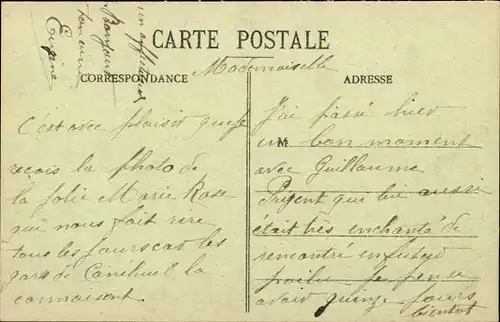 un affectueux
Bonjour
ton amie
Eugène
CARTE POSTALE
CORRESPONDANCE
Mademoiselle
ADRESSE
C'est avec plaisir que je
reçois la photo de
la jolie Marie Rose
qui nous fait rire
tous les jours car les
gars de Canihuel la
connaissent.
J'ai passé hier
M
un bon moment
avec Guillaume
Prigent qui lui aussi
était très enchanté de
rencontré un futur
poilu Je pense
avoir quinze jours
bientôt